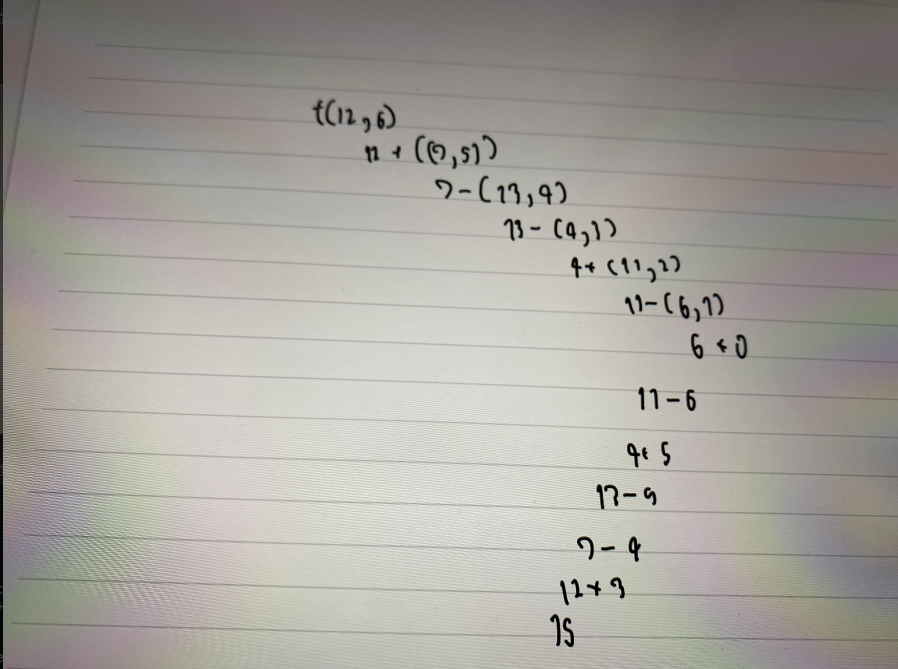 f(12,6)
12 + ((7,5))
7-(13,4)
13-(4,3)
4+(11,2)
11-(6,1)
6+0
11-6
4+5
13-9
7-4
12+3
15